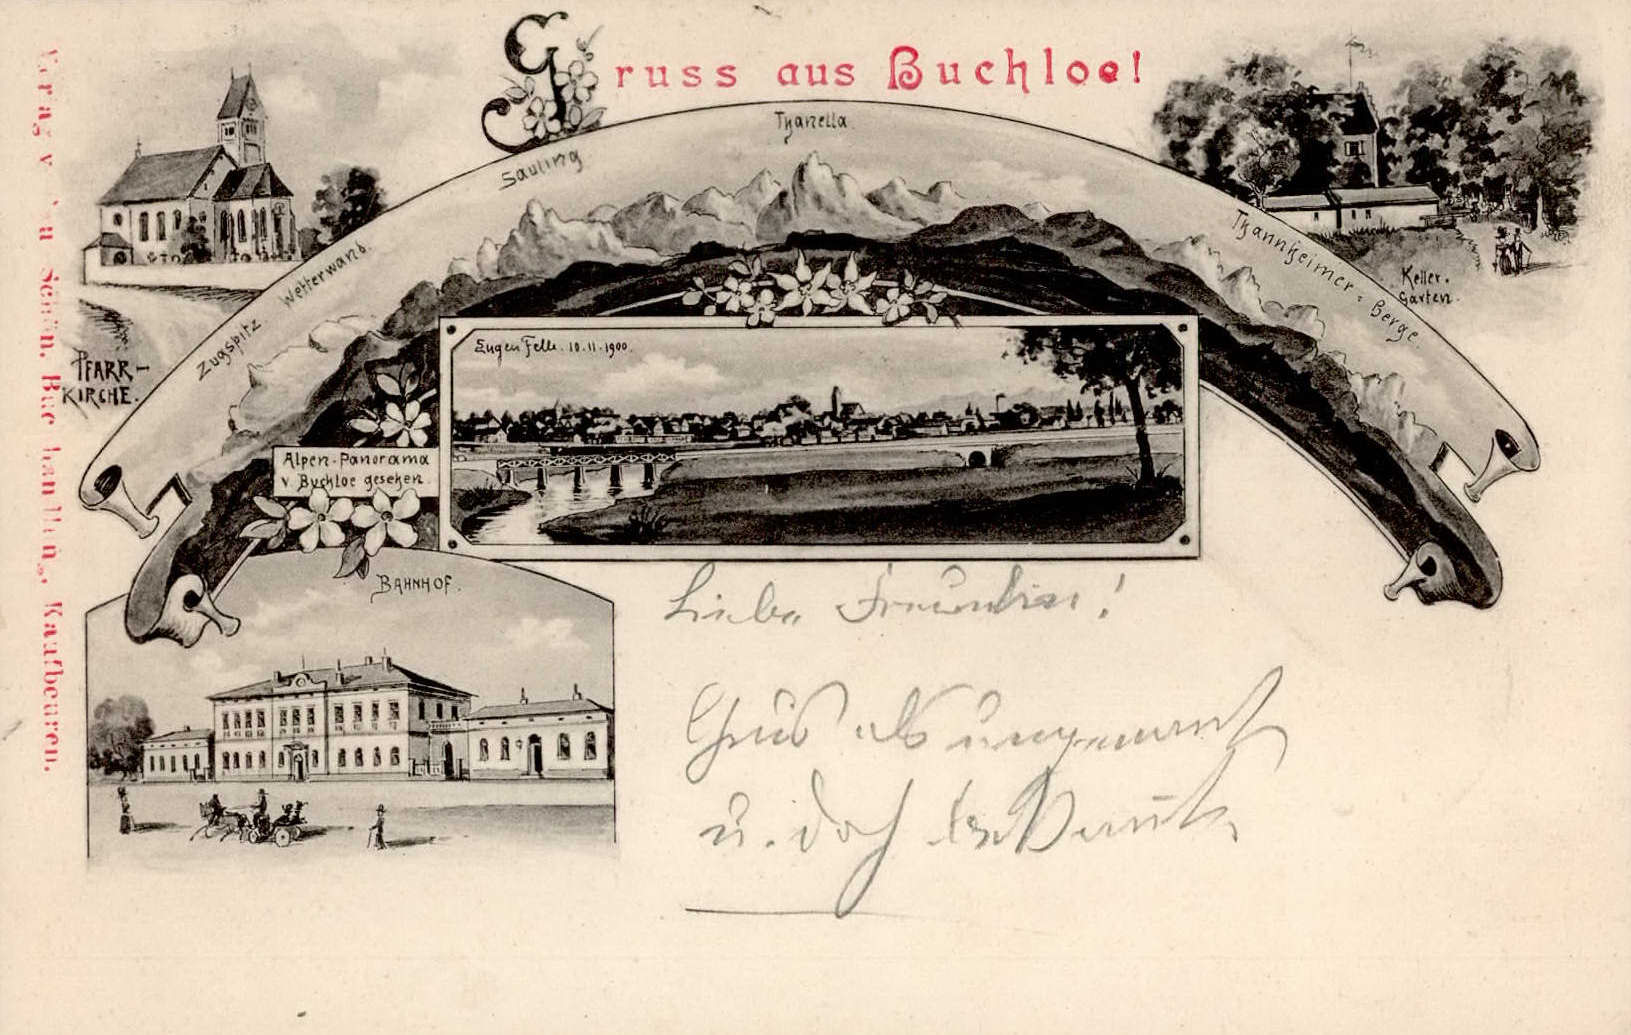 Gruss aus Buchloe!
Thanella.
Säuling
Wetterwand.
Zugspitz
Thannheimer-Berge.
Keller-
Garten.
PFARR-
KIRCHE.
Eugen Felle. 10.11.1900.
Alpen-Panorama
v. Buchloe gesehen.
BAHNHOF.
Verlag v. Schön, Buchhandlung, Kaufbeuren.
Liebe
Gruß als
u. doch